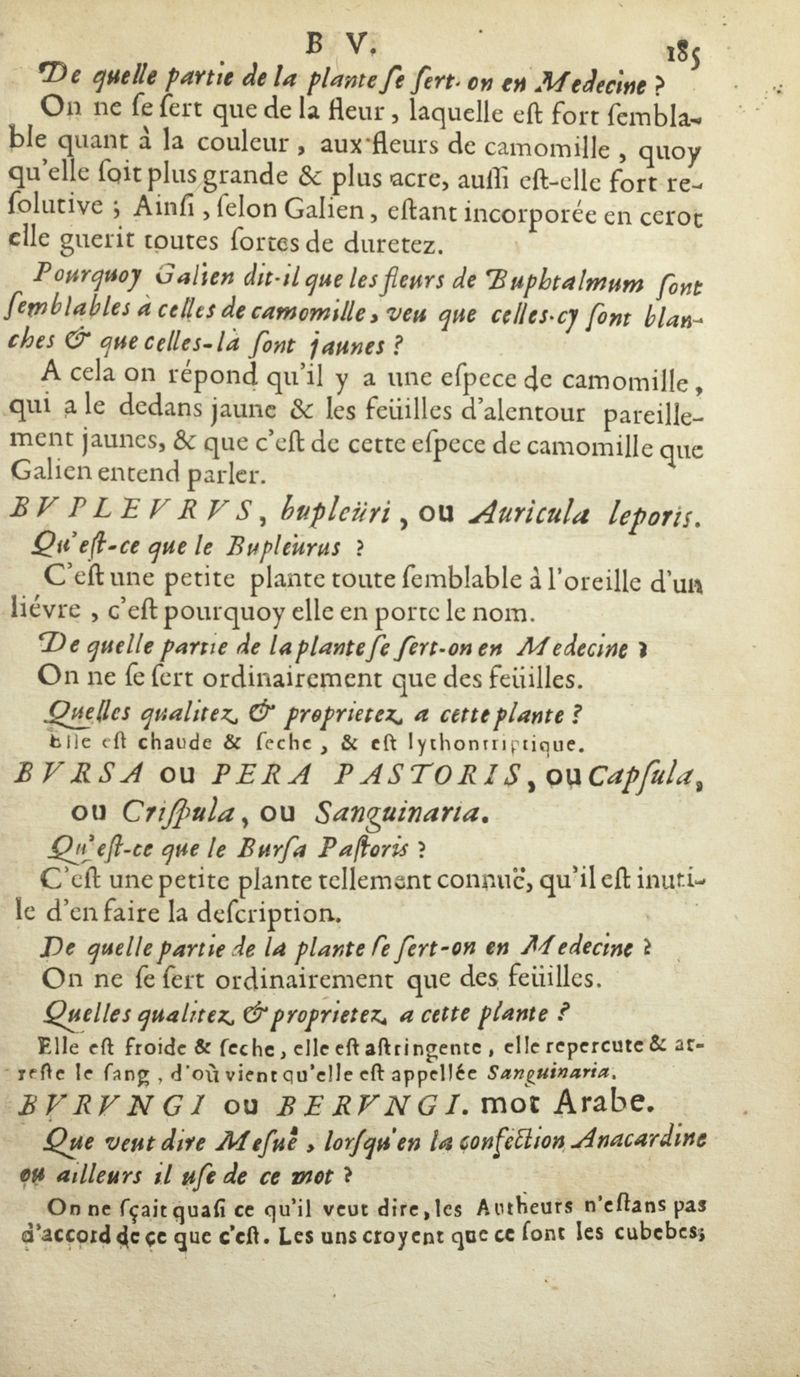 B V. 185
De quelle partie de la plante ſe ſert-on en Medecine ?
On ne ſe ſert que de la fleur, laquelle eſt fort ſembla-
ble quant à la couleur, aux fleurs de camomille, quoy
qu'elle ſoit plus grande & plus acre, auſſi eſt-elle fort re-
ſolutive ; Ainſi, ſelon Galien, eſtant incorporée en cerot
elle guerit toutes ſortes de duretez.
Pourquoy Galien dit-il que les fleurs de Buphtalmum ſont
ſemblables à celles de camomille, veu que celles-cy ſont blan-
ches & que celles-là ſont jaunes ?
A cela on répond qu'il y a une eſpece de camomille,
qui a le dedans jaune & les feüilles d'alentour pareille-
ment jaunes, & que c'eſt de cette eſpece de camomille que
Galien entend parler.
BVPLEVRVS, bupleüri, ou Auricula leporis.
Qu'eſt-ce que le Bupleurus ?
C'eſt une petite plante toute ſemblable à l'oreille d'un
liévre, c'eſt pourquoy elle en porte le nom.
De quelle partie de la plante ſe ſert-on en Medecine ?
On ne ſe ſert ordinairement que des feüilles.
Quelles qualitez & proprietez a cette plante ?
Elle eſt chaude & ſeche, & eſt lythontriptique.
BVRSA ou PERA PASTORIS, ou Capſula,
ou Criſpula, ou Sanguinaria.
Qu'eſt-ce que le Burſa Paſtoris ?
C'eſt une petite plante tellement connuë, qu'il eſt inuti-
le d'en faire la deſcription.
De quelle partie de la plante ſe ſert-on en Medecine ?
On ne ſe ſert ordinairement que des feüilles.
Quelles qualitez & proprietez a cette plante ?
Elle eſt froide & ſeche, elle eſt aſtringente, elle repercute & ar-
reſte le ſang, d'où vient qu'elle eſt appellée Sanguinaria.
BVRVNGI ou BERVNGI. mot Arabe.
Que veut dire Meſuê, lorſqu'en la confection Anacardine
ou ailleurs il uſe de ce mot ?
On ne ſçait quaſi ce qu'il veut dire, les Autheurs n'eſtans pas
d'accord de ce que c'eſt. Les uns croyent que ce ſont les cubebes;